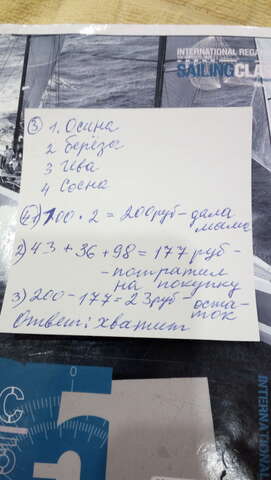 INTERNATIONAL REGA
SAILING CLA
③ 1. Осина
2 берёза
3 Ива
4 Сосна
④ 1) 100 • 2 = 200 руб - дала
мама
2) 43 + 36 + 98 = 177 руб -
- потратил
на покупку
3) 200 - 177 = 23 руб - оста-
ток
Ответ: хватит
INTERNATIONAL